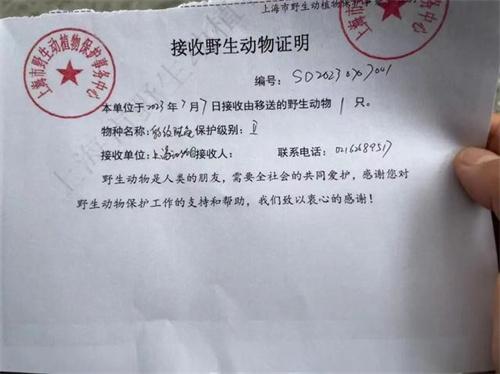 上海市野生动植物保护事务中心
上海市野生动植物保护事务中心
接收野生动物证明
编号: SD20230707001
本单位于2023年7月7日接收由移送的野生动物 1 只。
物种名称: 保护级别: Ⅱ
接收单位:上海动物园接收人: 联系电话: 02162689517
野生动物是人类的朋友,需要全社会的共同爱护,感谢您对
野生动物保护工作的支持和帮助,我们致以衷心的感谢!